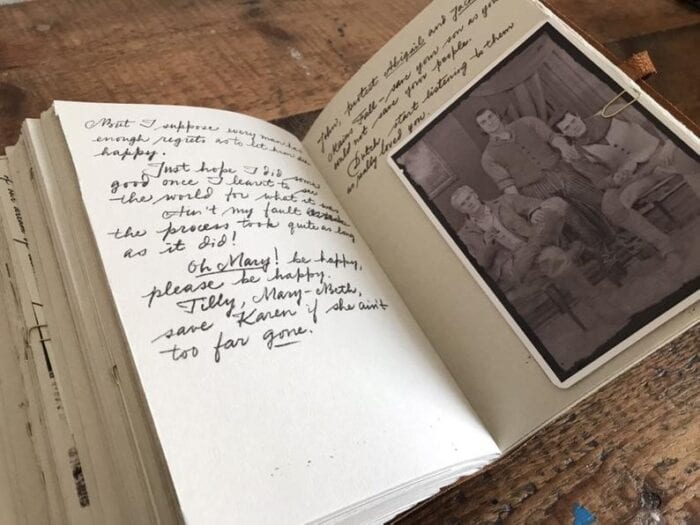 But I suppose every man
enough regrets as to let him
happy.
Just hope I did some
good once I learnt to see
the world for what it was
Ain't my fault
the process took quite as long
as it did!
Oh Mary! be happy,
please be happy.
Tilly, Mary-Beth,
save Karen if she ain't
too far gone.
John, protect Abigail and
Rains Fall - save your son as you
could not save your people.
Dutch, start listening to them
as really loved you.